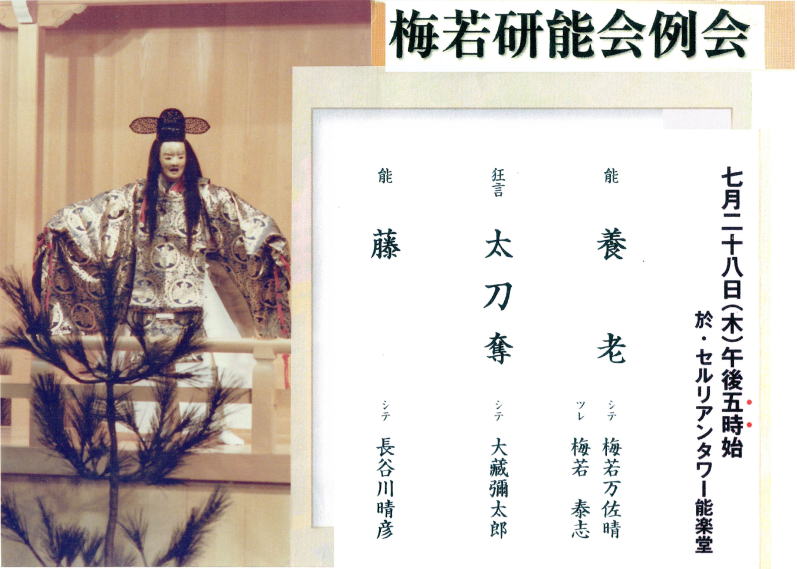 梅若研能会例会
七月二十八日(木)午後五時始
於・セルリアンタワー能楽堂
能 養老 シテ 梅若万佐晴
ツレ 梅若 泰志
狂言 太刀奪 シテ 大藏彌太郎
能 藤 シテ 長谷川晴彦